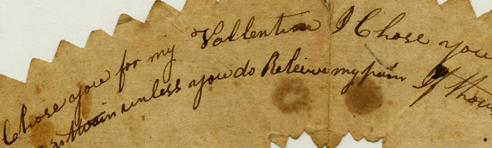 Chose you for my Vallentine I Chose you
in twain unless you do Releive my pain If thou